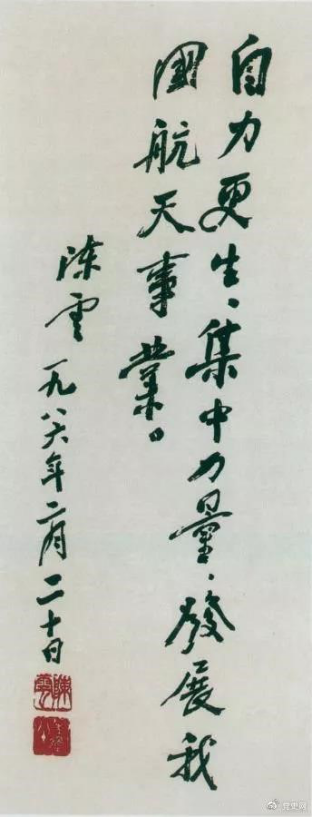 自力更生、集中力量、發展我
國航天事業。
陈雲
一九八六年二月二十日